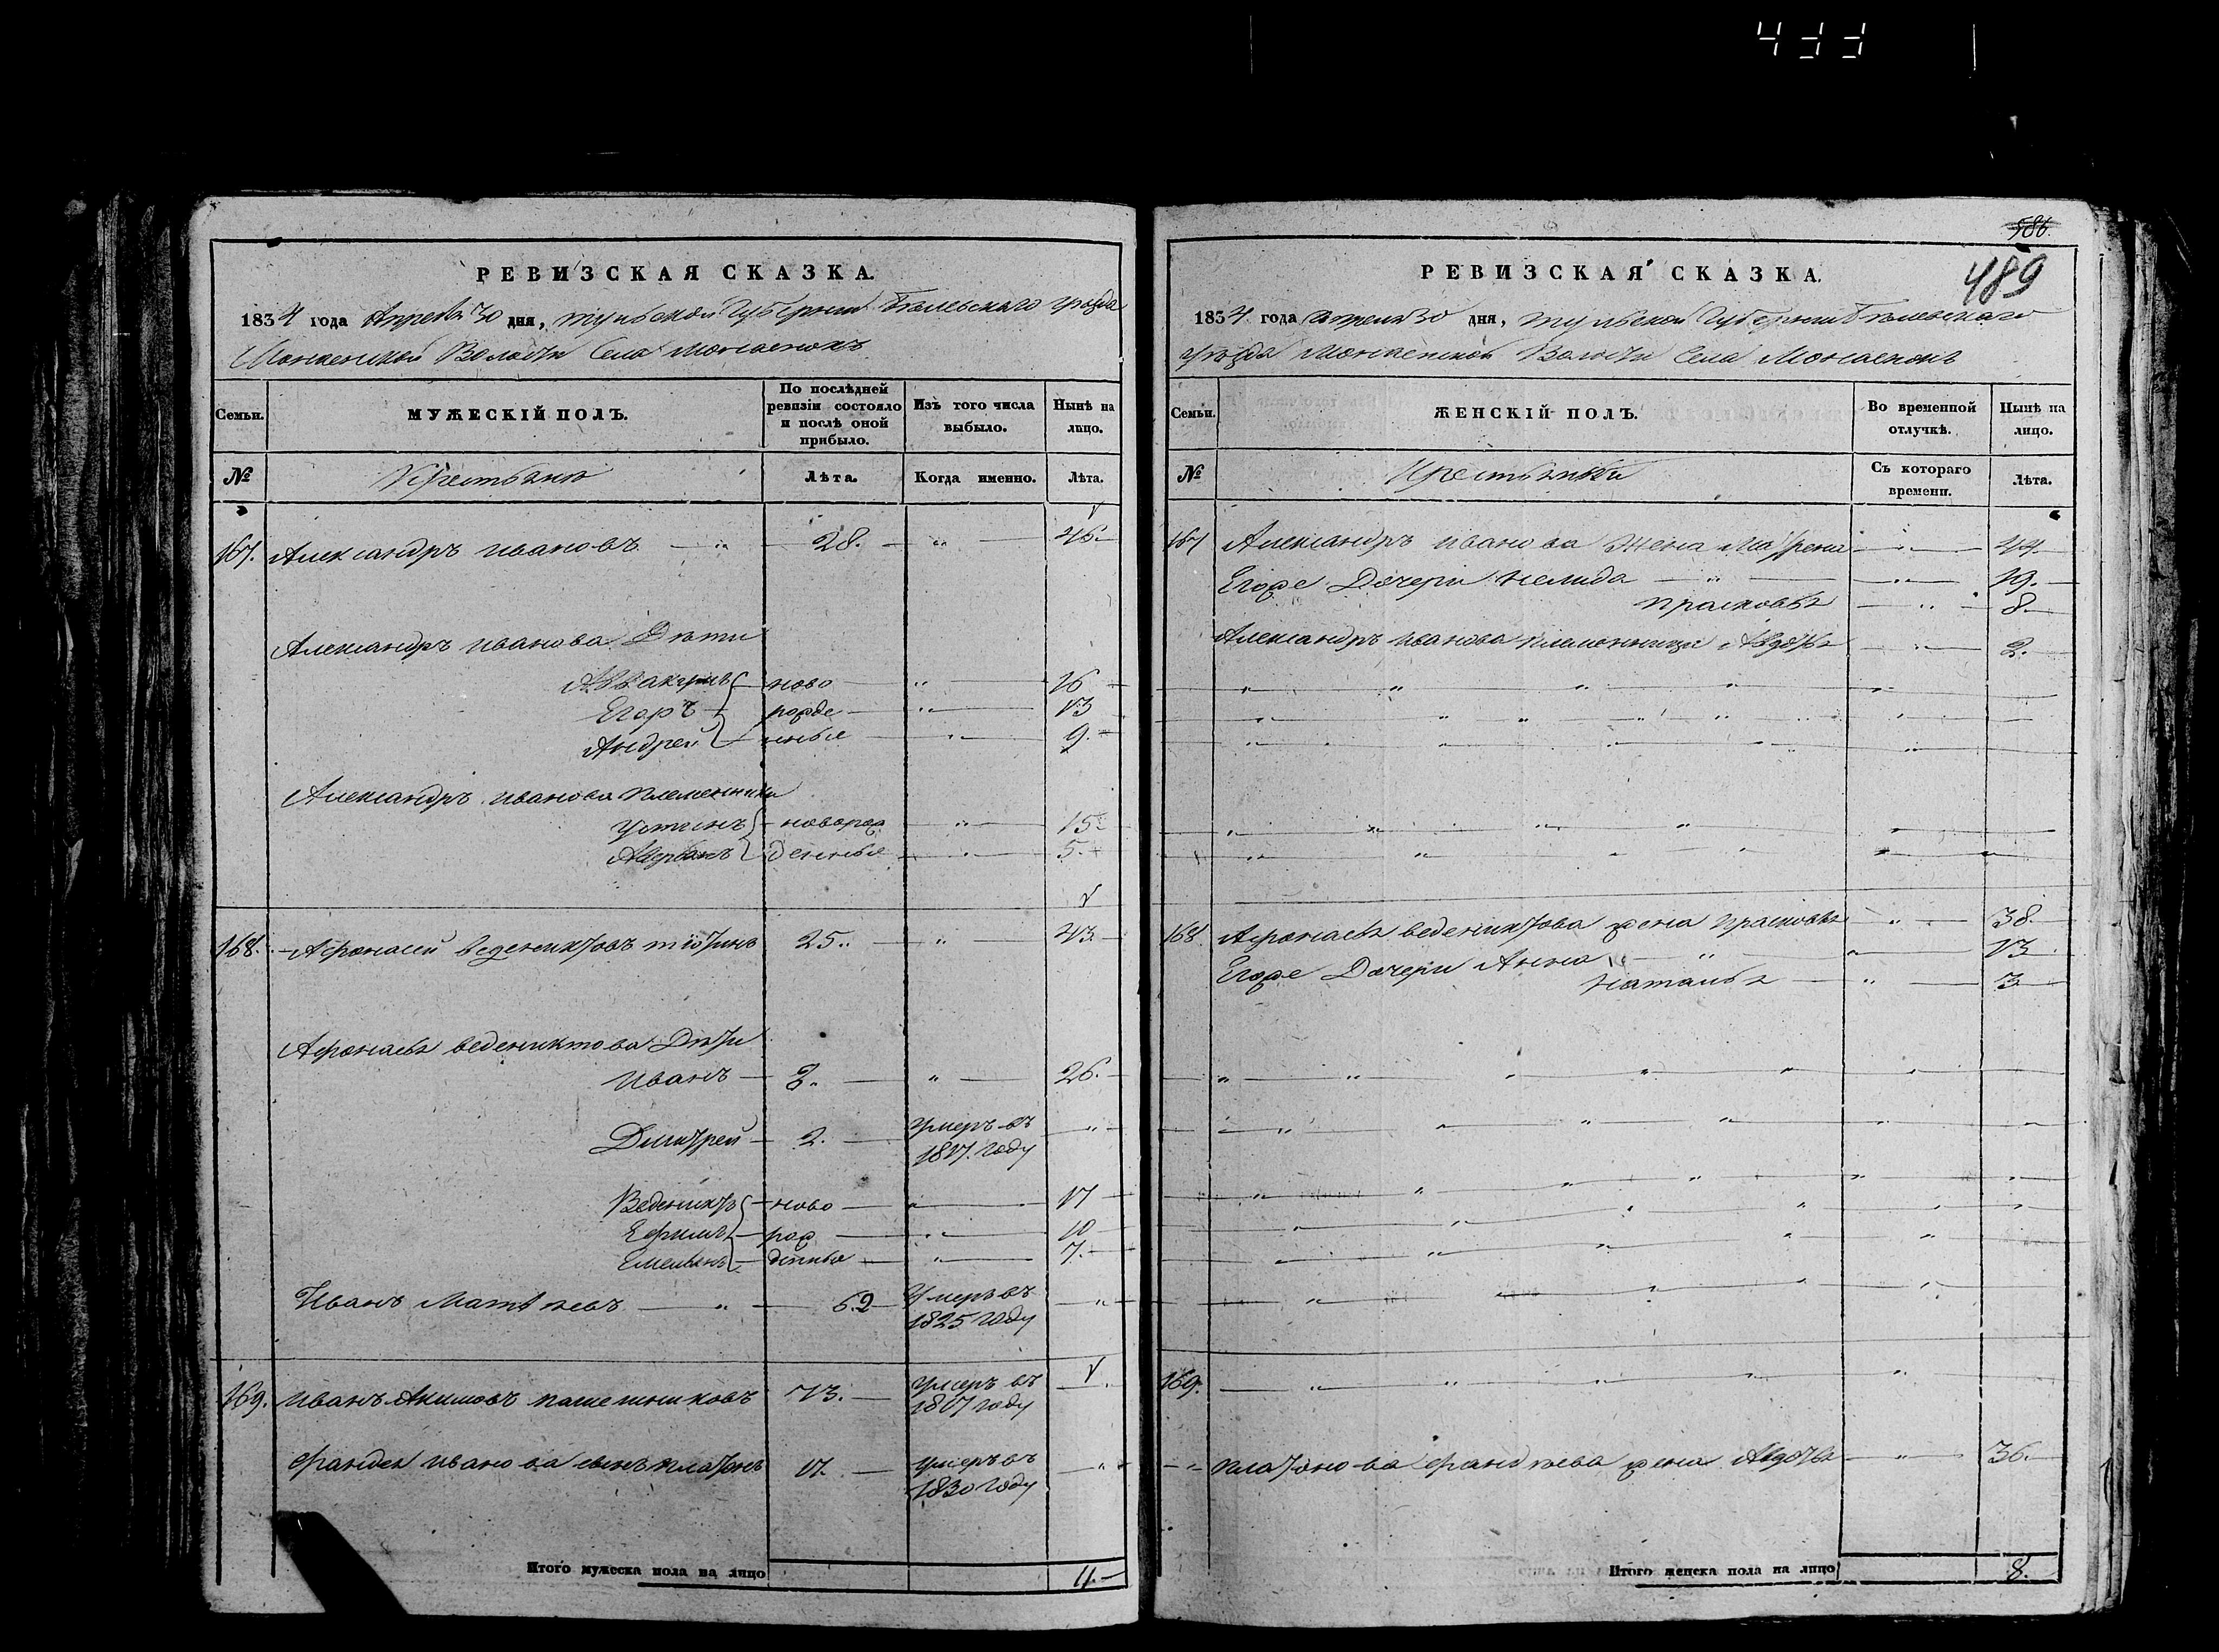 433
РЕВИЗСКАЯ СКАЗКА.
1834 года Апреля 30 дня, Тульской Губернии Белевского уезда
Волости Села
Семьи.
МУЖЕСКІЙ ПОЛЪ.
По послѣдней ревизіи состояло и послѣ оной прибыло.
Изъ того числа выбыло.
Нынѣ на лицо.
№
Крестьяне
Лѣта.
Когда именно.
Лѣта.
167. Александръ Ивановъ 28. 46.
Александръ Иванова Дѣти
Аввакумъ ново 16
Егоръ рожде 13
Андрей нные 9.
Александръ Иванова племенники
Устинъ новорож 15
денные 5.
168. Афонасей Веденихтовъ 25. 43
Афонасья Веденихтова Дѣти
Иванъ 26.
Димитрей 2. умеръ въ
1817. году
Веденихтъ ново 17
Ефимъ рож 10
Емельянъ 7.
Иванъ 62 Умеръ въ
1825 году
169. Иванъ Акимовъ 73. умеръ въ
году
Иванова сынъ Платонъ 17. умеръ въ
1830 году
Итого мужеска пола на лицо 11.
586.
489
РЕВИЗСКАЯ СКАЗКА.
1834. года апреля 30 дня, Тульской Губернии Белевскаго
уезда Волости Села
Семьи.
ЖЕНСКІЙ ПОЛЪ.
Во временной отлучкѣ.
Нынѣ на лицо.
№
Крестьянки
Съ котораго времени.
Лѣта.
167 Александръ Иванова Жена 44.
Егоже Дочери 19.
Прасковья 8.
Александръ Иванова племенница Авдотья 2.
168 Афонасья Веденихтова жена Прасковья 38.
Егоже Дочери Анна 13
Наталья 3
169.
Платонова жена Авдотья 36.
Итого женска пола на лицо 8.